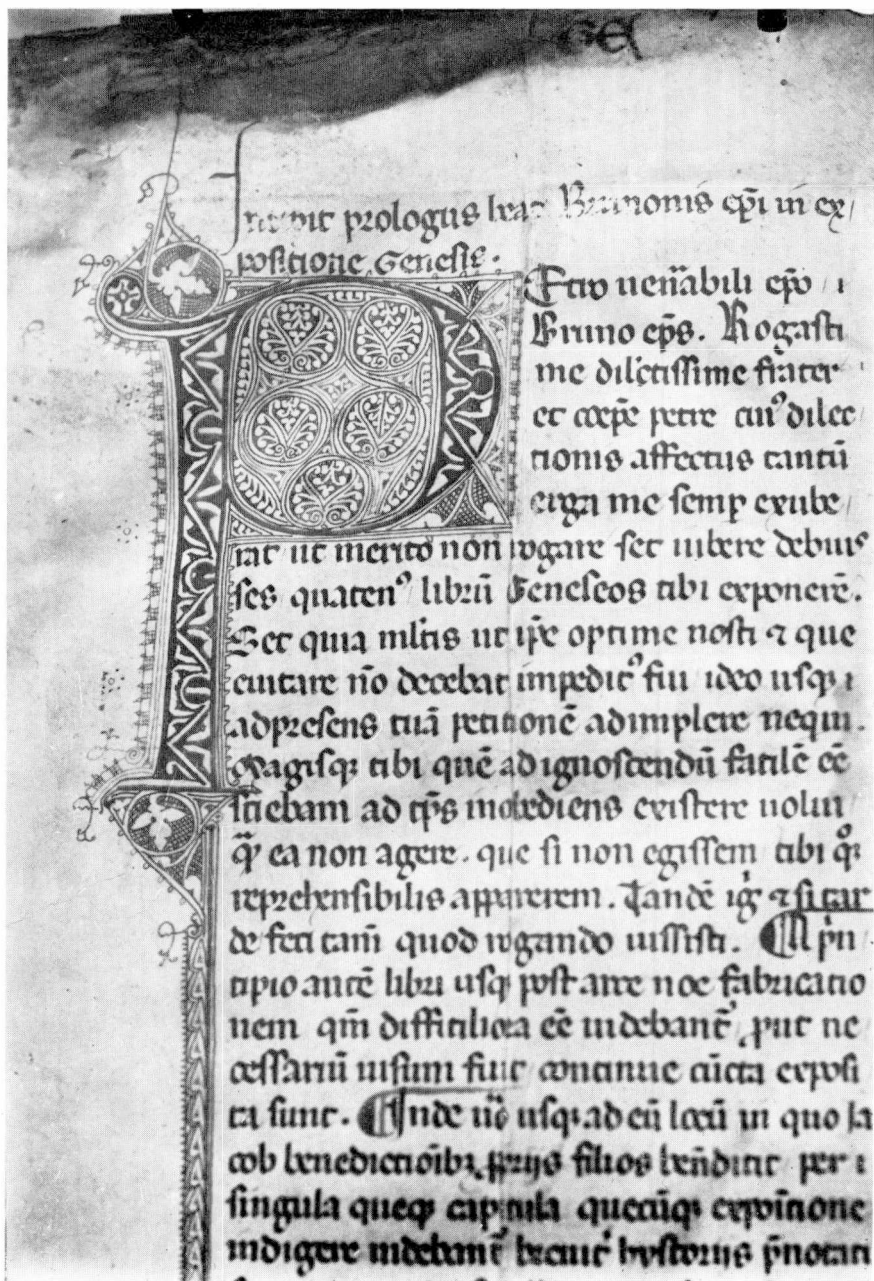 GE
Incipit prologus beati Brunonis ep̄i in ex
positione Genesis.
Petro uen̄abili ep̄o
Bruno ep̄s. Rogasti
me dilectissime frater
et cœpe petre cui᷒ dilec
tionis affectus tantū
erga me semp exube
rat ut merito non rogare set iubere debuis
ses quaten᷒ librū Geneseos tibi exponerē.
Set quia ml̄tis ut ip̄e optime nosti ⁊ que
euitare nō decebat impedit᷒ fui ideo usqꝫ
ad presens tuā petitionē adimplere nequi.
Magisqꝫ tibi quē ad ignoscendū facilē eē
sciebam ad tp̄s inobediens existere uolui
q̄ ea non agere. que si non egissem tibi
reprehensibilis apparerem. Tandē ig̑ ⁊ si tar
de feci tam̄ quod rogando iussisti. A prin
cipio autē libri usqꝫ post arce noe fabricatio
nem qm̄ difficiliora eē uidebant᷑, ꝓut ne
cessariū uisum fuit continue cūcta exposi
ta sunt. Inde ū usqꝫ ad eū locū in quo Ia
cob benedictiōibꝫ ꝓprijs filios ben̄dicit per
singula queqꝫ capitula quecūqꝫ expōitione
indigere uidebant᷑ breuit᷑ hystorijs p̄notati